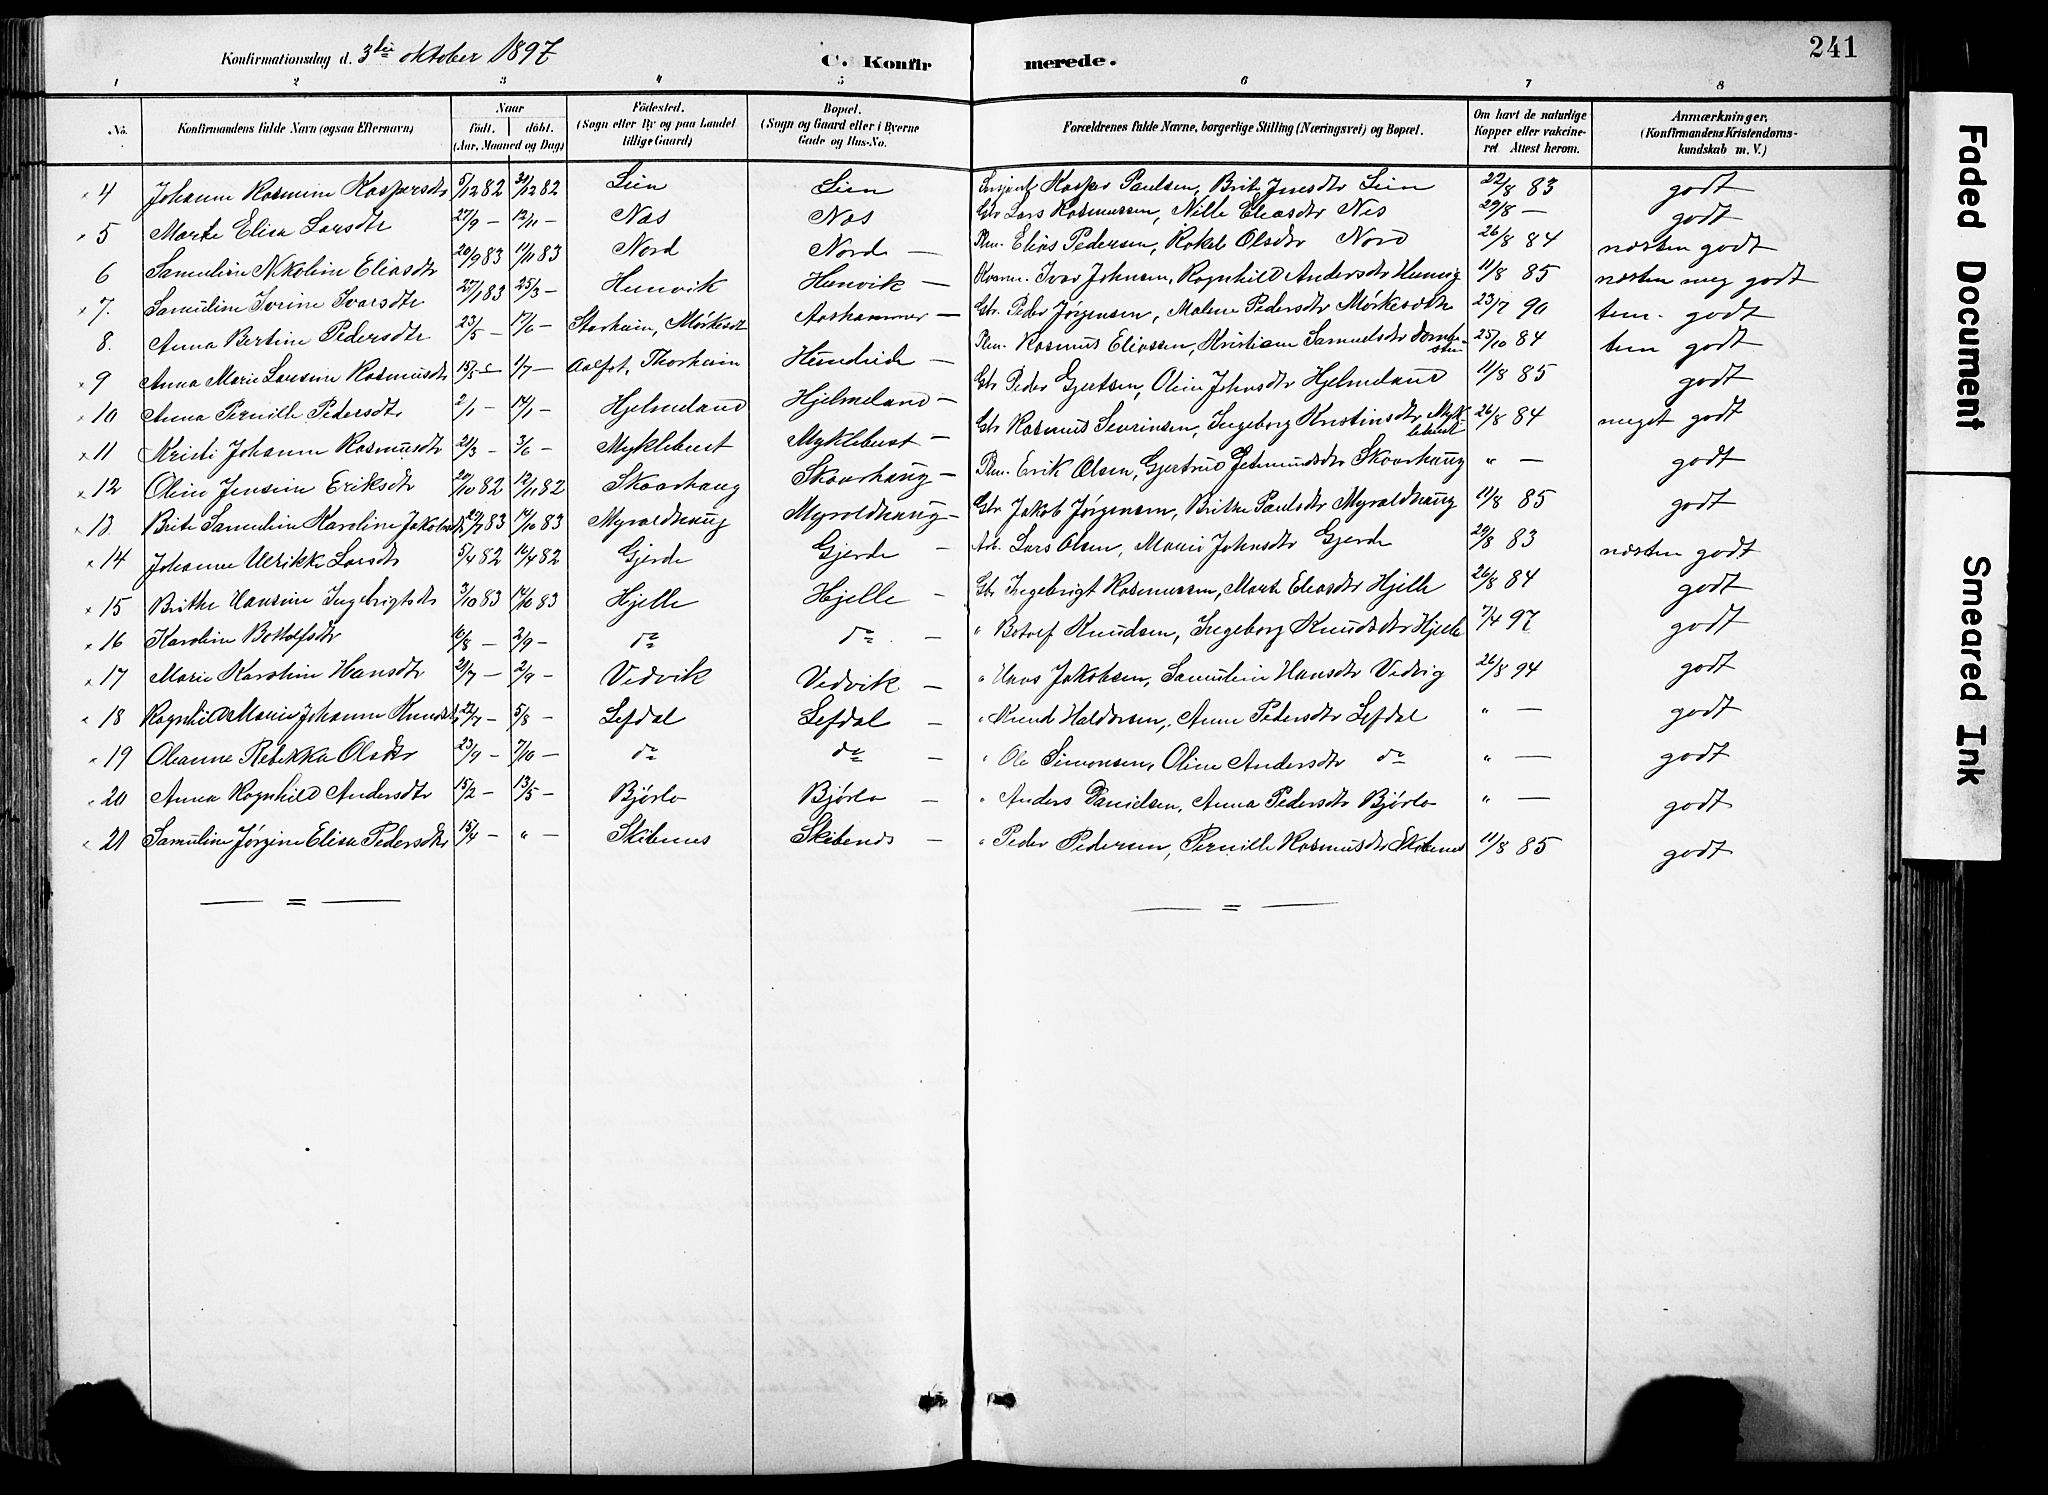 Konfirmationsdag d. 3die oktober 1897
C. Konfirmerede.
241
1 2 3 4 5 6 7 8
No. Konfirmandens fulde Navn (ogsaa Efternavn) Naar født. døbt. (Aar, Maaned og Dag) Fødested. (Sogn eller By og paa Landet tillige Gaard) Bopæl. (Sogn og Gaard eller i Byerne Gade og Hus-No. Forældrenes fulde Navne, borgerlige Stilling (Næringsvei) og Bopæl. Om havt de naturlige Kopper eller vakcineret Attest herom. Anmærkninger. (Konfirmandens Kristendomskundskab m. V.)
4 Johanne Rasmine Kaspersdtr 5/12 82 31/12 82 Lien Lien Kasper Paulsen, Brite Lien 22/8 83 godt
5 Marte Elisa Larsdtr 27/9 — 12/11 Nas Nas Gbr Lars Rasmussen, Nille Eliasdtr Nes 29/8 — godt
6 Samuline Nikoline Eliasdtr 20/9 83 11/11 83 Nord Nord — Elias Pedersen, Rakel Olsdtr Nord 26/8 84 næsten godt
7. Samuline Ivrine Ivarsdtr 27/1 83 25/3 — Hunvik Hunvik — Ivar Johnsen, Ragnhild Andersdtr 11/8 85 næsten meg godt
8. Anna Bertine Pedersdtr 23/5 — 17/6 — Starheim, Mørkesdt Aashammer — Gbr. Peder Jørgensen, Malene Pedersdtr 23/7 90 tem. godt
9 Anna Marie Larsine Rasmusdtr 15/5 — 1/7 — Aalfot, Thorheim Hundeide — Rasmus Eliassen, Kristiane Samuelsdtr 25/10 84 tem godt
10 Anna Pernille Pedersdtr 2/1 — 14/1 — Hjelmeland Hjelmeland — Gbr Peder Gjertsen, Oline Johnsdtr Hjelmeland 11/8 85 godt
11 Kristi Johanne Rasmusdtr 21/3 — 3/6 — Myklebust Myklebust — Gbr Rasmus Sevrinsen, Ingeborg Kristinsdtr Myklebust 26/8 84 meget godt
12 Oline Jensine Eriksdtr 20/10 82 12/11 82 Skaarhaug Skaarhaug — Erik Olsen, Gjertrud Skaarhaug " — godt
13. Brite Samuline Karoline 29/7 83 14/10 83 Myroldhaug Myroldhaug — Gbr Jakob Jørgensen, Brithe Paulsdtr Myroldhaug 11/8 85 godt
14 Johanne Ulrikke Larsdtr 5/4 82 16/4 82 Gjerde Gjerde — Arb. Lars Olsen, Marie Johnsdtr Gjerde 29/8 83 næsten godt
15 Brithe Hansine Ingebrigtsdtr 3/10 83 14/10 83 Hjelle Hjelle — Gbr Ingebrigt Rasmussen, Marte Eliasdtr Hjelle 26/8 84 godt
16 Karoline Botolfsdtr 16/8 — 2/9 — do do — " Botolf Knudsen, Ingeborg Knudsdtr Hjelle 7/4 97 godt
17 Marie Karoline Hansdtr 21/7 — 2/9 — Vedvik Vedvik — " Hans Jakobsen, Samuline Hansdtr Vedvig 26/8 94 godt
18 Ragnhild Marie Johanne 22/7 — 5/8 — Lefdal Lefdal — " Knud Haldorsen, Anne Pedersdtr Lefdal " — godt
19 Oleanne Rebekka Olsdtr 23/9 — 7/10 — do do — " Ole Simonsen, Oline Andersdtr do " — godt
20 Anna Ragnhild Andersdtr 15/2 — 13/5 — Bjørlo Bjørlo — " Anders Danielsen, Anna Pedersdtr Bjørlo " — godt
21 Samuline Jørgine Elisa Pedersdtr 15/4 — " — Skibenes Skibenes — " Peder Pedersen, Pernille Rasmusdtr Skibenes 11/8 85 godt
Faded Document
Smeared Ink